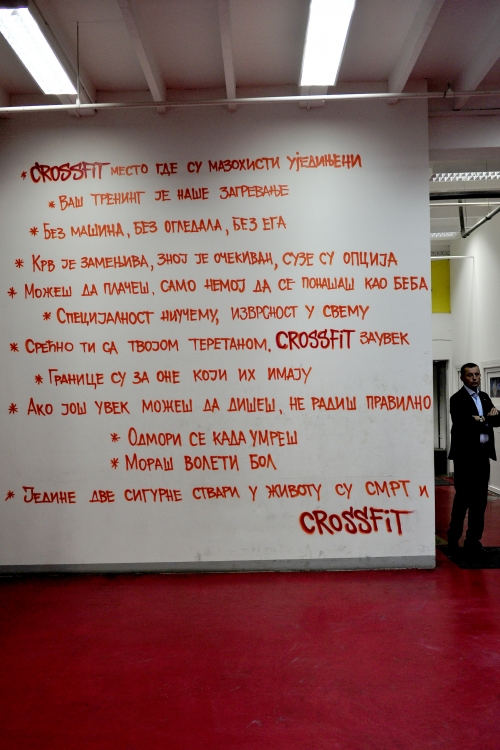 * CROSSFIT МЕСТО ГДЕ СУ МАЗОХИСТИ УЈЕДИЊЕНИ
* ВАШ ТРЕНИНГ ЈЕ НАШЕ ЗАГРЕВАЊЕ
* БЕЗ МАШИНА, БЕЗ ОГЛЕДАЛА, БЕЗ ЕГА
* КРВ ЈЕ ЗАМЕЊИВА, ЗНОЈ ЈЕ ОЧЕКИВАН, СУЗЕ СУ ОПЦИЈА
* МОЖЕШ ДА ПЛАЧЕШ. САМО НЕМОЈ ДА СЕ ПОНАШАШ КАО БЕБА.
* СПЕЦИЈАЛНОСТ НИУЧЕМУ, ИЗВРСНОСТ У СВЕМУ
* СРЕЋНО ТИ СА ТВОЈОМ ТЕРЕТАНОМ. CROSSFIT ЗАУВЕК
* ГРАНИЦЕ СУ ЗА ОНЕ КОЈИ ИХ ИМАЈУ
* АКО ЈОШ УВЕК МОЖЕШ ДА ДИШЕШ, НЕ РАДИШ ПРАВИЛНО
* ОДМОРИ СЕ КАДА УМРЕШ
* МОРАШ ВОЛЕТИ БОЛ
* ЈЕДИНЕ ДВЕ СИГУРНЕ СТВАРИ У ЖИВОТУ СУ СМРТ И
CROSSFIT